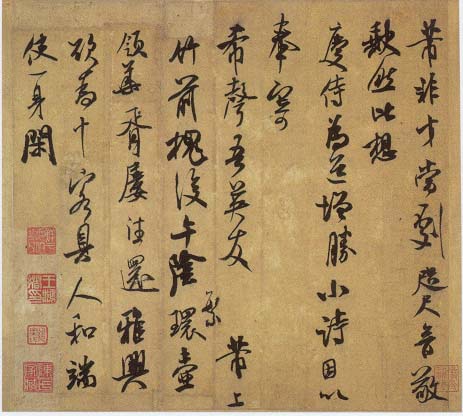 芾非才當劇咫尺音敬
闕然比想
慶侍為道增勝小詩因以
奉寄
希聲吾英友 芾上
繁
竹前槐後午陰環壺
領華胥屢往還雅興
欲為十客具人和端
使一身閑